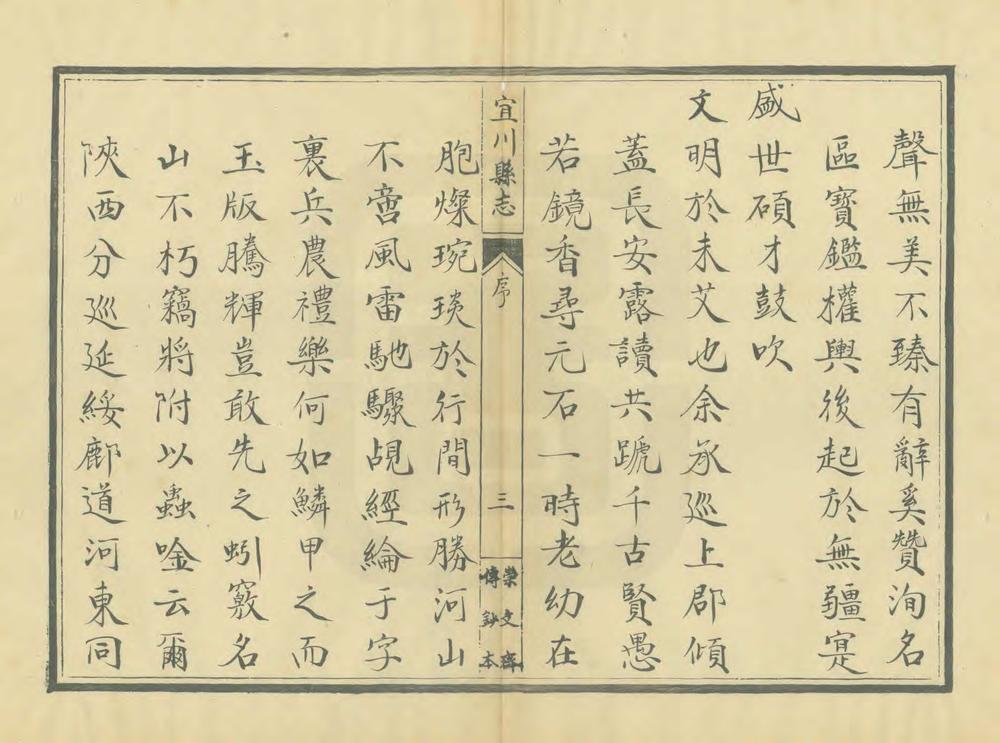 聲無美不臻有辭奚贊洵名
區寶鑑權輿後起於無疆寔
盛世碩才鼓吹
文明於未艾也余承巡上郡傾
蓋長安露讀共蹏千古賢愚
若鏡香尋元石一時老幼在
宜川縣志
序
三
榮文齋
傳鈔本
胞燦琬琰於行間形勝河山
不啻風雷馳驟覘經綸于字
裏兵農禮樂何如鱗甲之而
玉版騰輝豈敢先之蚓竅名
山不朽竊將附以蟲唫云爾
陝西分巡延綏鄜道河東同